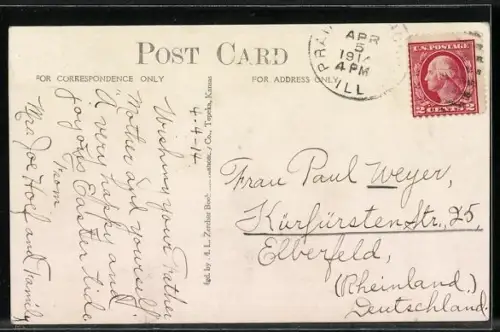 POST CARD
FOR CORRESPONDENCE ONLY
FOR ADDRESS ONLY
APR
5
4 PM
ILL
U.S. POSTAGE
2 CENTS 2
4-4-14.
Wishing your Father
Mother and yourself
A very happy and
joyous Easter tide
from
Mrs Joe and Family
Co., Topeka, Kansas
Frau Paul Weyer,
Kürfürsten Str, 25,
Elberfeld,
(Rheinland.)
Deutschland.